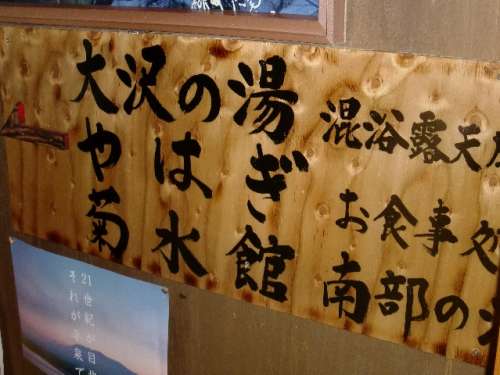 大沢の湯
やはぎ
菊水館
混浴露天
お食事処
南部の
21世紀が目
それが